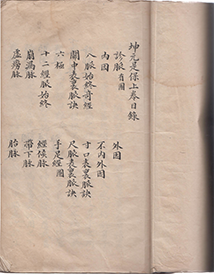 坤元是保上卷目錄
診脈有圖
內因
八脈始終奇經
關中表裏脈訣
六極
十二經脈始終
崩漏脈
虛癆脈
外因
不內外因
寸口表裏脈訣
尺脈表裏脈訣
手足經圖
經候脈
帶下脈
胎脈